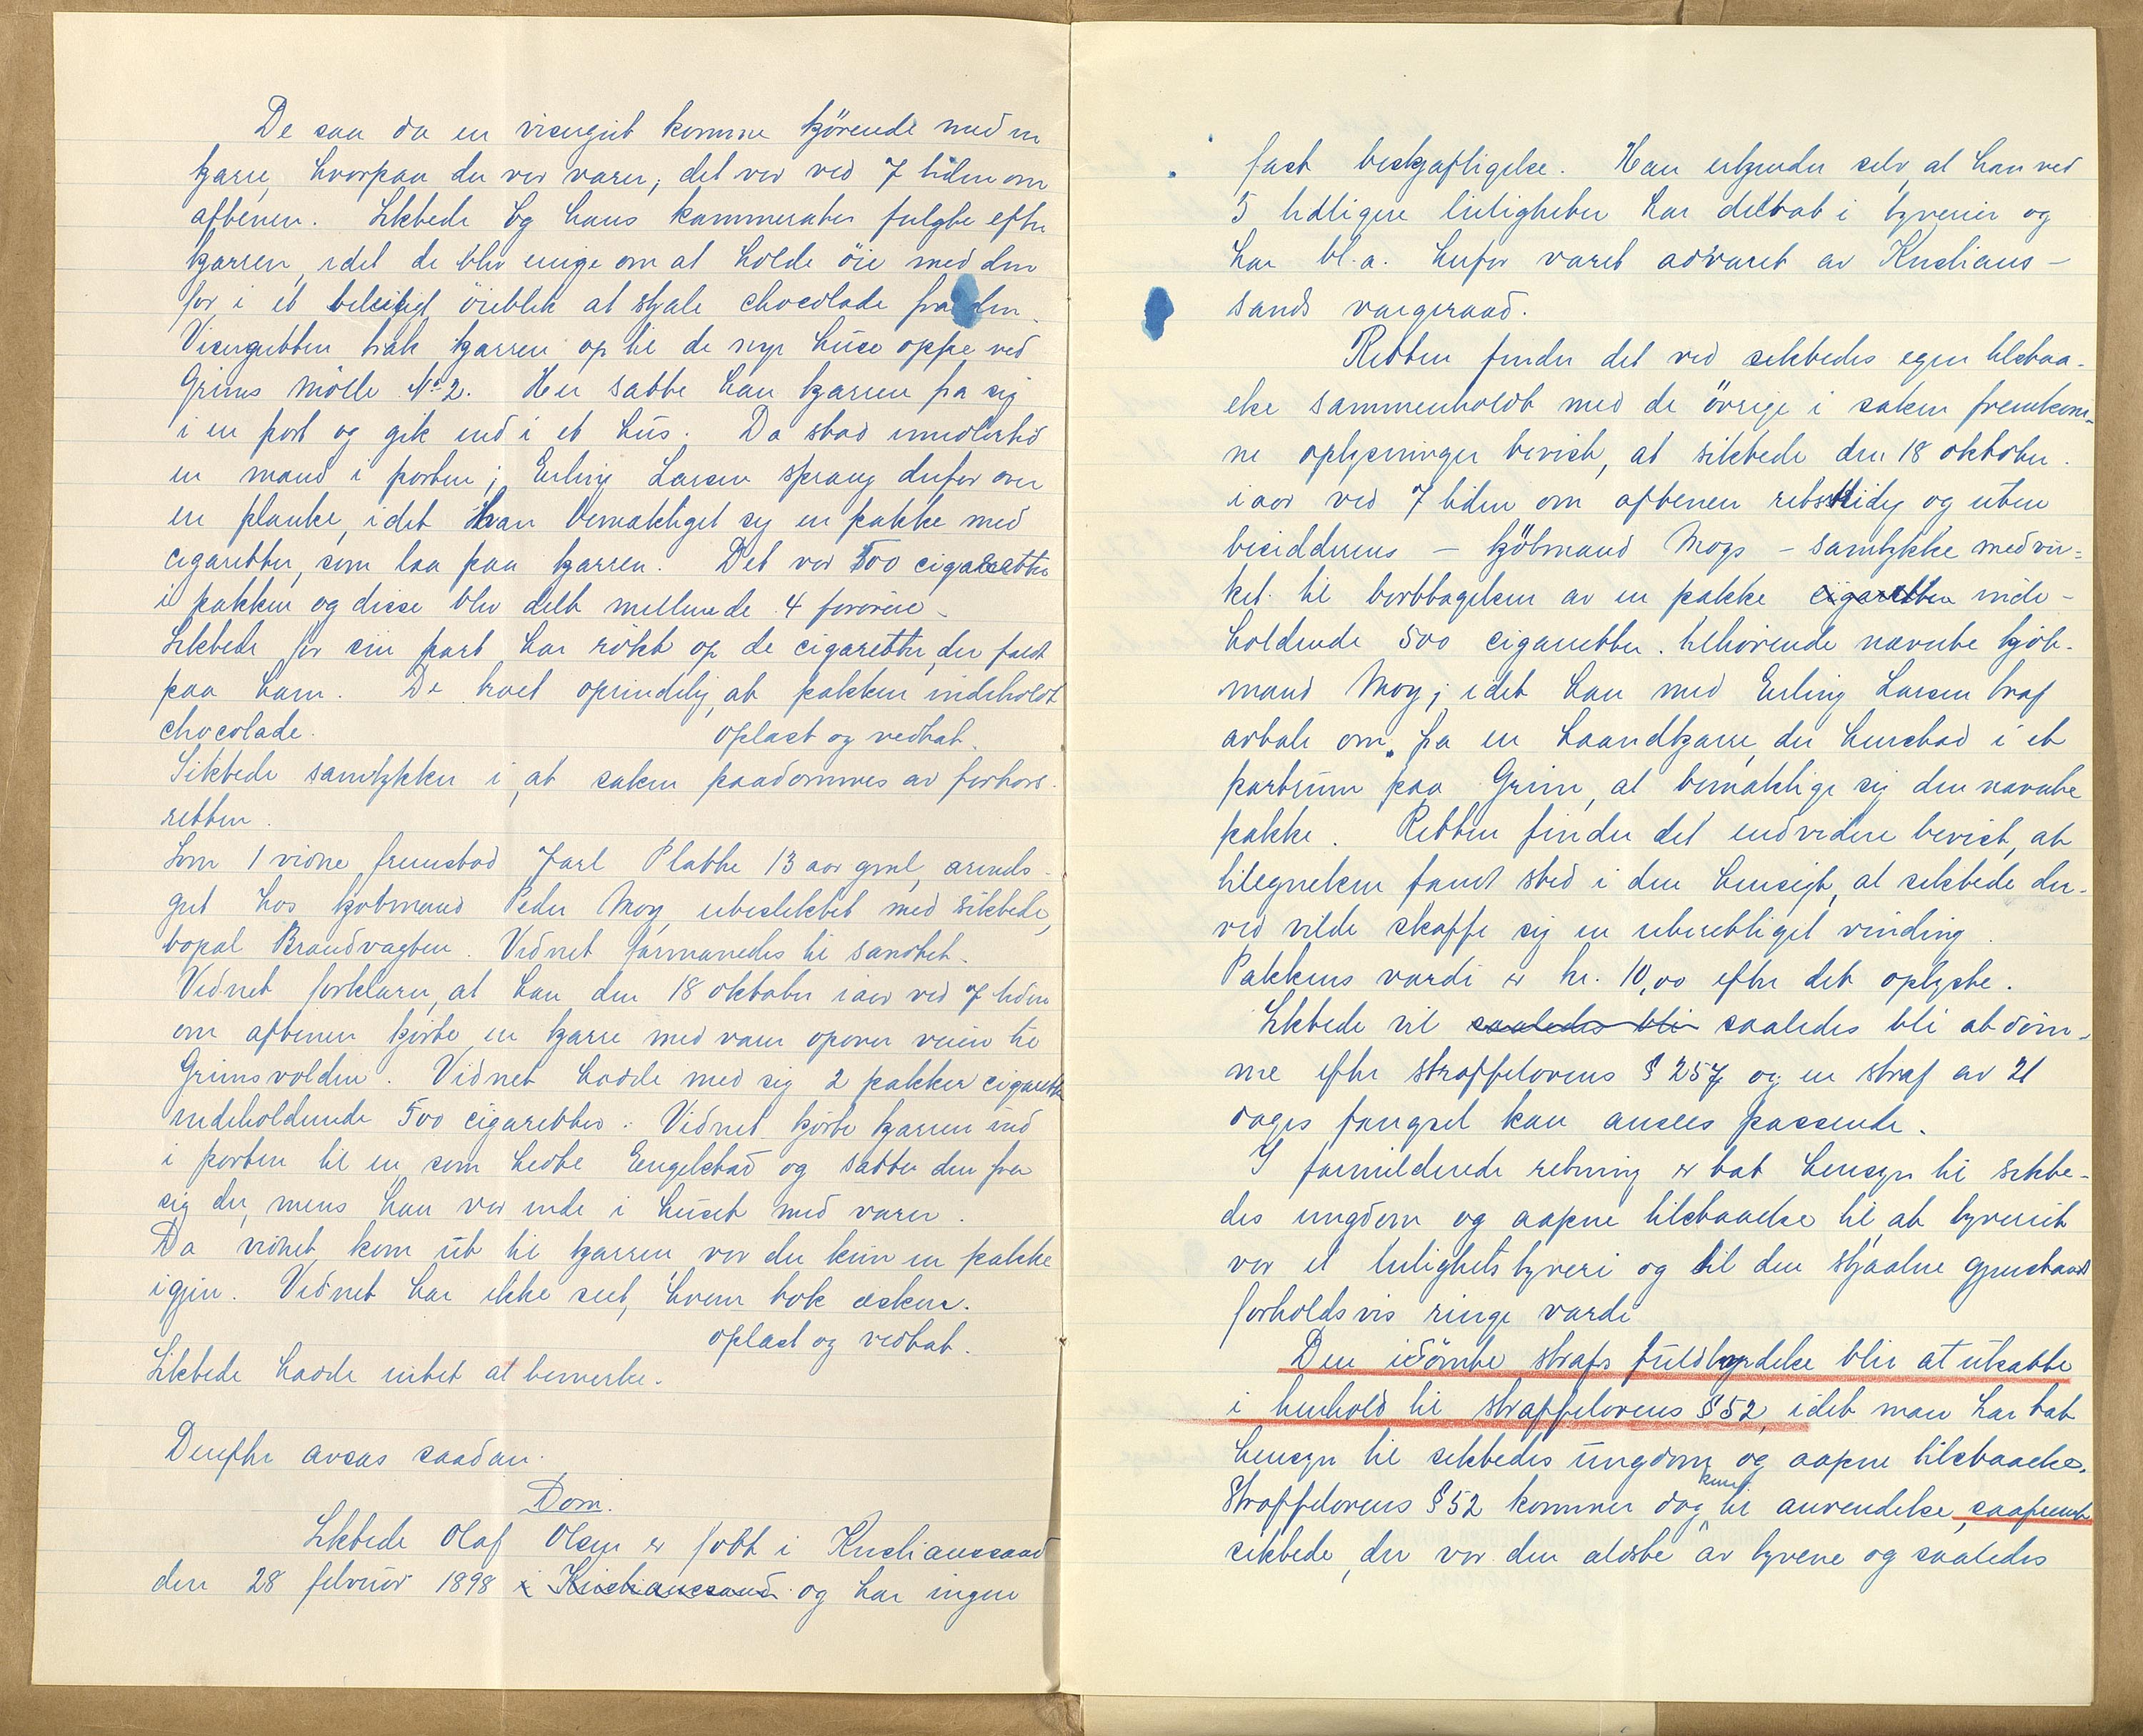 De saa da en visergut komme kjörende med en
kjærre, hvorpaa der var varer; det var ved 7 tiden om
aftenen. Siktede og hans kammerater fulgte efter
kjærren, idet de blev enige om at holde öie med den
for i et beleiligt öieblik at stjæle chocolade fra den.
Visergutten trak kjærren op til de nye huse oppe ved
Grims Mölle No 2. Her satte han kjærren fra sig
i en port og gik ind i et hus. Da stod imidlertid
en mand i porten; Erling Larsen sprang derfor over
en planke, idet han bemæktiget sig en pakke med
cigaretter, som laa paa kjærren. Det var 500 cigaretter
i pakken og disse blev delt mellem de 4 forövere.
Siktede for sin part har rökt op de cigaretter, der faldt
paa ham. De troet oprindelig, at pakken indeholdt
chocolade.
oplæst og vedtat.
Siktede samtykker i, at saken paadömmes av forhörs-
retten.
Som 1 vidne fremstod Jarl Plathe 13 aar gml, ærends-
gut hos kjöbmand Peder Moy, ubeslektet med siktede,
bopæl Brandvagten. Vidnet formanedes til sandhet.
Vidnet forklarer, at han den 18 oktober iaar ved 7 tiden
om aftenen kjörte en kjærre med varer opover veien til
Grimsvolden. Vidnet hadde med sig 2 pakker cigaretter
indeholdende 500 cigaretter. Vidnet kjörte kjærren ind
i porten til en som hedte Eengelstad og satte den fra
sig der, mens han var inde i huset med varer.
Da vidnet kom ut til kjærren var der kun en pakke
igjen. Vidnet har ikke seet, hvem tok æsken.
oplæst og vedtat.
Siktede hadde intet at bemerke.
Derefter avsas saadan
Dom.
Siktede Olaf Olsen er födt i Kristianssand
den 28 februar 1898 i Kristianssand og har ingen
fast beskjæftigelse. Han erkjender selv, at han ved
5 tidligere leiligheter har deltat i tyverier og
har bl.a. herfor været advaret av Kristians-
sands værgeraad.
Retten finder det ved siktedes egen tilstaa-
else sammenholdt med de övrige i saken fremkom-
ne oplysninger bevist, at siktede den 18 oktober
iaar ved 7 tiden om aftenen retstridig og uten
besidderens – kjöbmand Moys – samtykke medvir-
ket til borttagelsen av en pakke cigaretter inde-
holdende 500 cigaretter tilhörende nævnte kjöb-
mand Moy; idet han med Erling Larsen traf
avtale om, fra en haandkjærre, der henstod i et
portrum paa Grim, at bemæktige sig den nævnte
pakke. Retten finder det endvidere bevist, at
tilegnelsen fandt sted i den hensigt, at siktede der-
ved vilde skaffe sig en uberettiget vinding.
Pakkens værdi er kr. 10,00 efter det oplyste.
Siktede vil saaledes bli saaledes bli at döm-
me efter straffelovens § 257 og en straf av 21
dages fængsel kan ansees passende.
I formildende retning er tat hensyn til sikte-
des ungdom og aapne tilstaaelse til, at tyveriet
var et leilighetstyveri og til den stjaalne gjenstands
forholdsvis ringe værdi
Den idömte strafs fuldbyrdelse blir at utsætte
i henhold til straffelovens § 52, idet man har tat
hensyn til siktedes ungdom og aapne tilstaaelse.
Straffelovens § 52 kommer dog kun til anvendelse, saafremt
siktede, der var den ældste av tyvene og saaledes